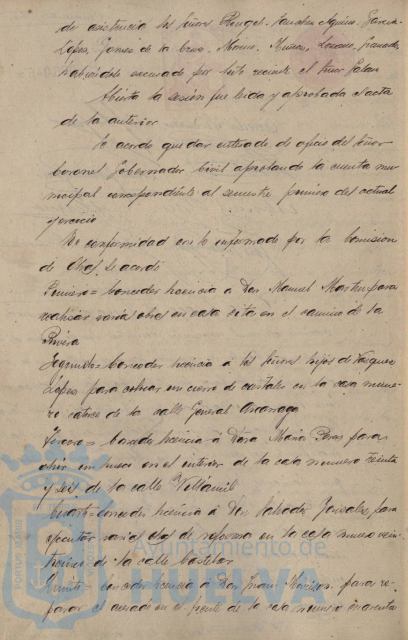 de asistencia los Señores Rengel, Sanchez Aguirre, Garcia
Lopez, Gomez de la Munoz, Lozano, Granado,
habiéndolo escusado por luto reciente el Señor Galan
Abierta la sesión fue leida y aprobada el acta
de la anterior
Se acordó quedar enterado de oficio del Señor
Coronel Gobernador Civil aprobando la cuenta mu-
nicipal correspondiente al semestre primero del actual
ejercicio
De conformidad con lo informado por la Comision
de Obras, se acordó
Primero = Conceder licencia á Don Manuel Martin para
realizar varias obras en casa sita en el camino de la
Rivera
Segundo = Conceder licencia á los Señores hijos de Vazquez
López para colocar un cierro de cristales en la casa nume-
ro catorce de la calle General
Tercero = Concede licencia á Doña Maria Perez para
abrir un hueco en el interior de la casa numero treinta
y seis de la calle Villamil
Cuarto = Conceder licencia á Don Salvador Gonzalez para
ejecutar varias obras de reforma en la casa numero vein-
de la calle Castelar
Quinto = Conceder licencia á Don Juan para re-
parar el acerado en el frente de la casa numero cuarenta
Ayuntamiento de
HUELVA
PORTUS MARIS